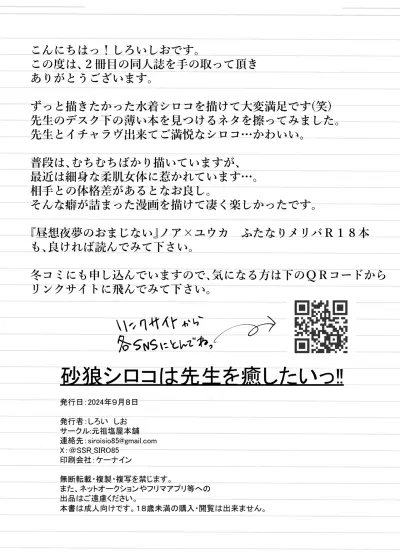 こんにちはっ！しろいしおです。
この度は、２冊目の同人誌を手の取って頂き
ありがとうございます。
ずっと描きたかった水着シロコを描けて大変満足です(笑)
先生のデスク下の薄い本を見つけるネタを擦ってみました。
先生とイチャラヴ出来てご満悦なシロコ…かわいい。
普段は、むちむちばかり描いていますが、
最近は細身な柔肌女体に惹かれています…。
相手との体格差があるとなお良し。
そんな癖が詰まった漫画を描けて凄く楽しかったです。
『昼想夜夢のおまじない』ノア×ユウカ　ふたなりメリバＲ１８本
も、良ければ読んでみて下さい。
冬コミにも申し込んでいますので、気になる方は下のＱＲコードから
リンクサイトに飛んでみて下さい。
リンクサイトから
各SNSにとんでねっ
砂狼シロコは先生を癒したいっ!!
発行日：2024年９月８日
発行者：しろい　しお
サークル：元祖塩屋本舗
連絡先：siroisio85@gmail.com
X：@SSR_SIRO85
印刷会社：ケーナイン
無断転載・複製・複写を禁じます。
また、ネットオークションやフリマアプリ等への
出品はご遠慮ください。
本書は成人向けです。１８歳未満の購入・閲覧は出来ません。